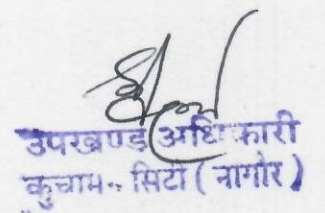 उपखण्ड अधिकारी
कुचामन सिटी (नागौर)